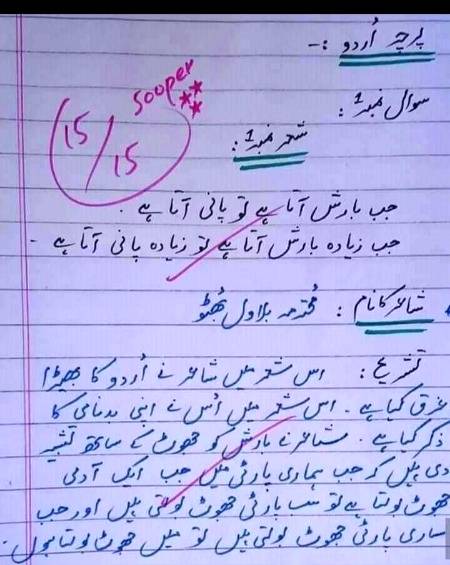 پرچہ اُردو :-
سوال نمبر 1:
sooper
شعر نمبر 1:
15/15
جب بارش آتا ہے تو پانی آتا ہے .
جب زیادہ بارش آتا ہے تو زیادہ پانی آتا ہے -
شاعر کا نام : محترمہ بلاول بُھٹو
تشریح : اس شعر میں شاعر نے اُردو کا بیڑا
غرق کیا ہے . اس شعر میں اُس نے اپنی بدنامی کا
ذکر کیا ہے . شاعر نے بارش کو جھوٹ کے ساتھ تشبیہ
دی ہیں کہ جب ہماری پارٹی میں جب ایک آدمی
جھوٹ بولتا ہے تو سب پارٹی جھوٹ بولتی ہیں اور جب
ساری پارٹی جھوٹ بولتی ہیں تو میں جھوٹ بولتا ہوں .